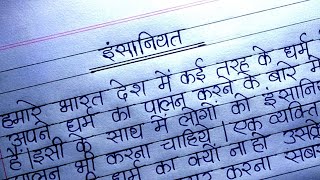 इंसानियत
हमारे भारत देश में कई तरह के धर्म
अपने धर्म का पालन करने के बारे में
हैं। इसी के साथ में लोगों की इंसानि
पालन भी करना चाहिये। एक व्यक्ति
धर्म का क्यों ना हो उसके
करना